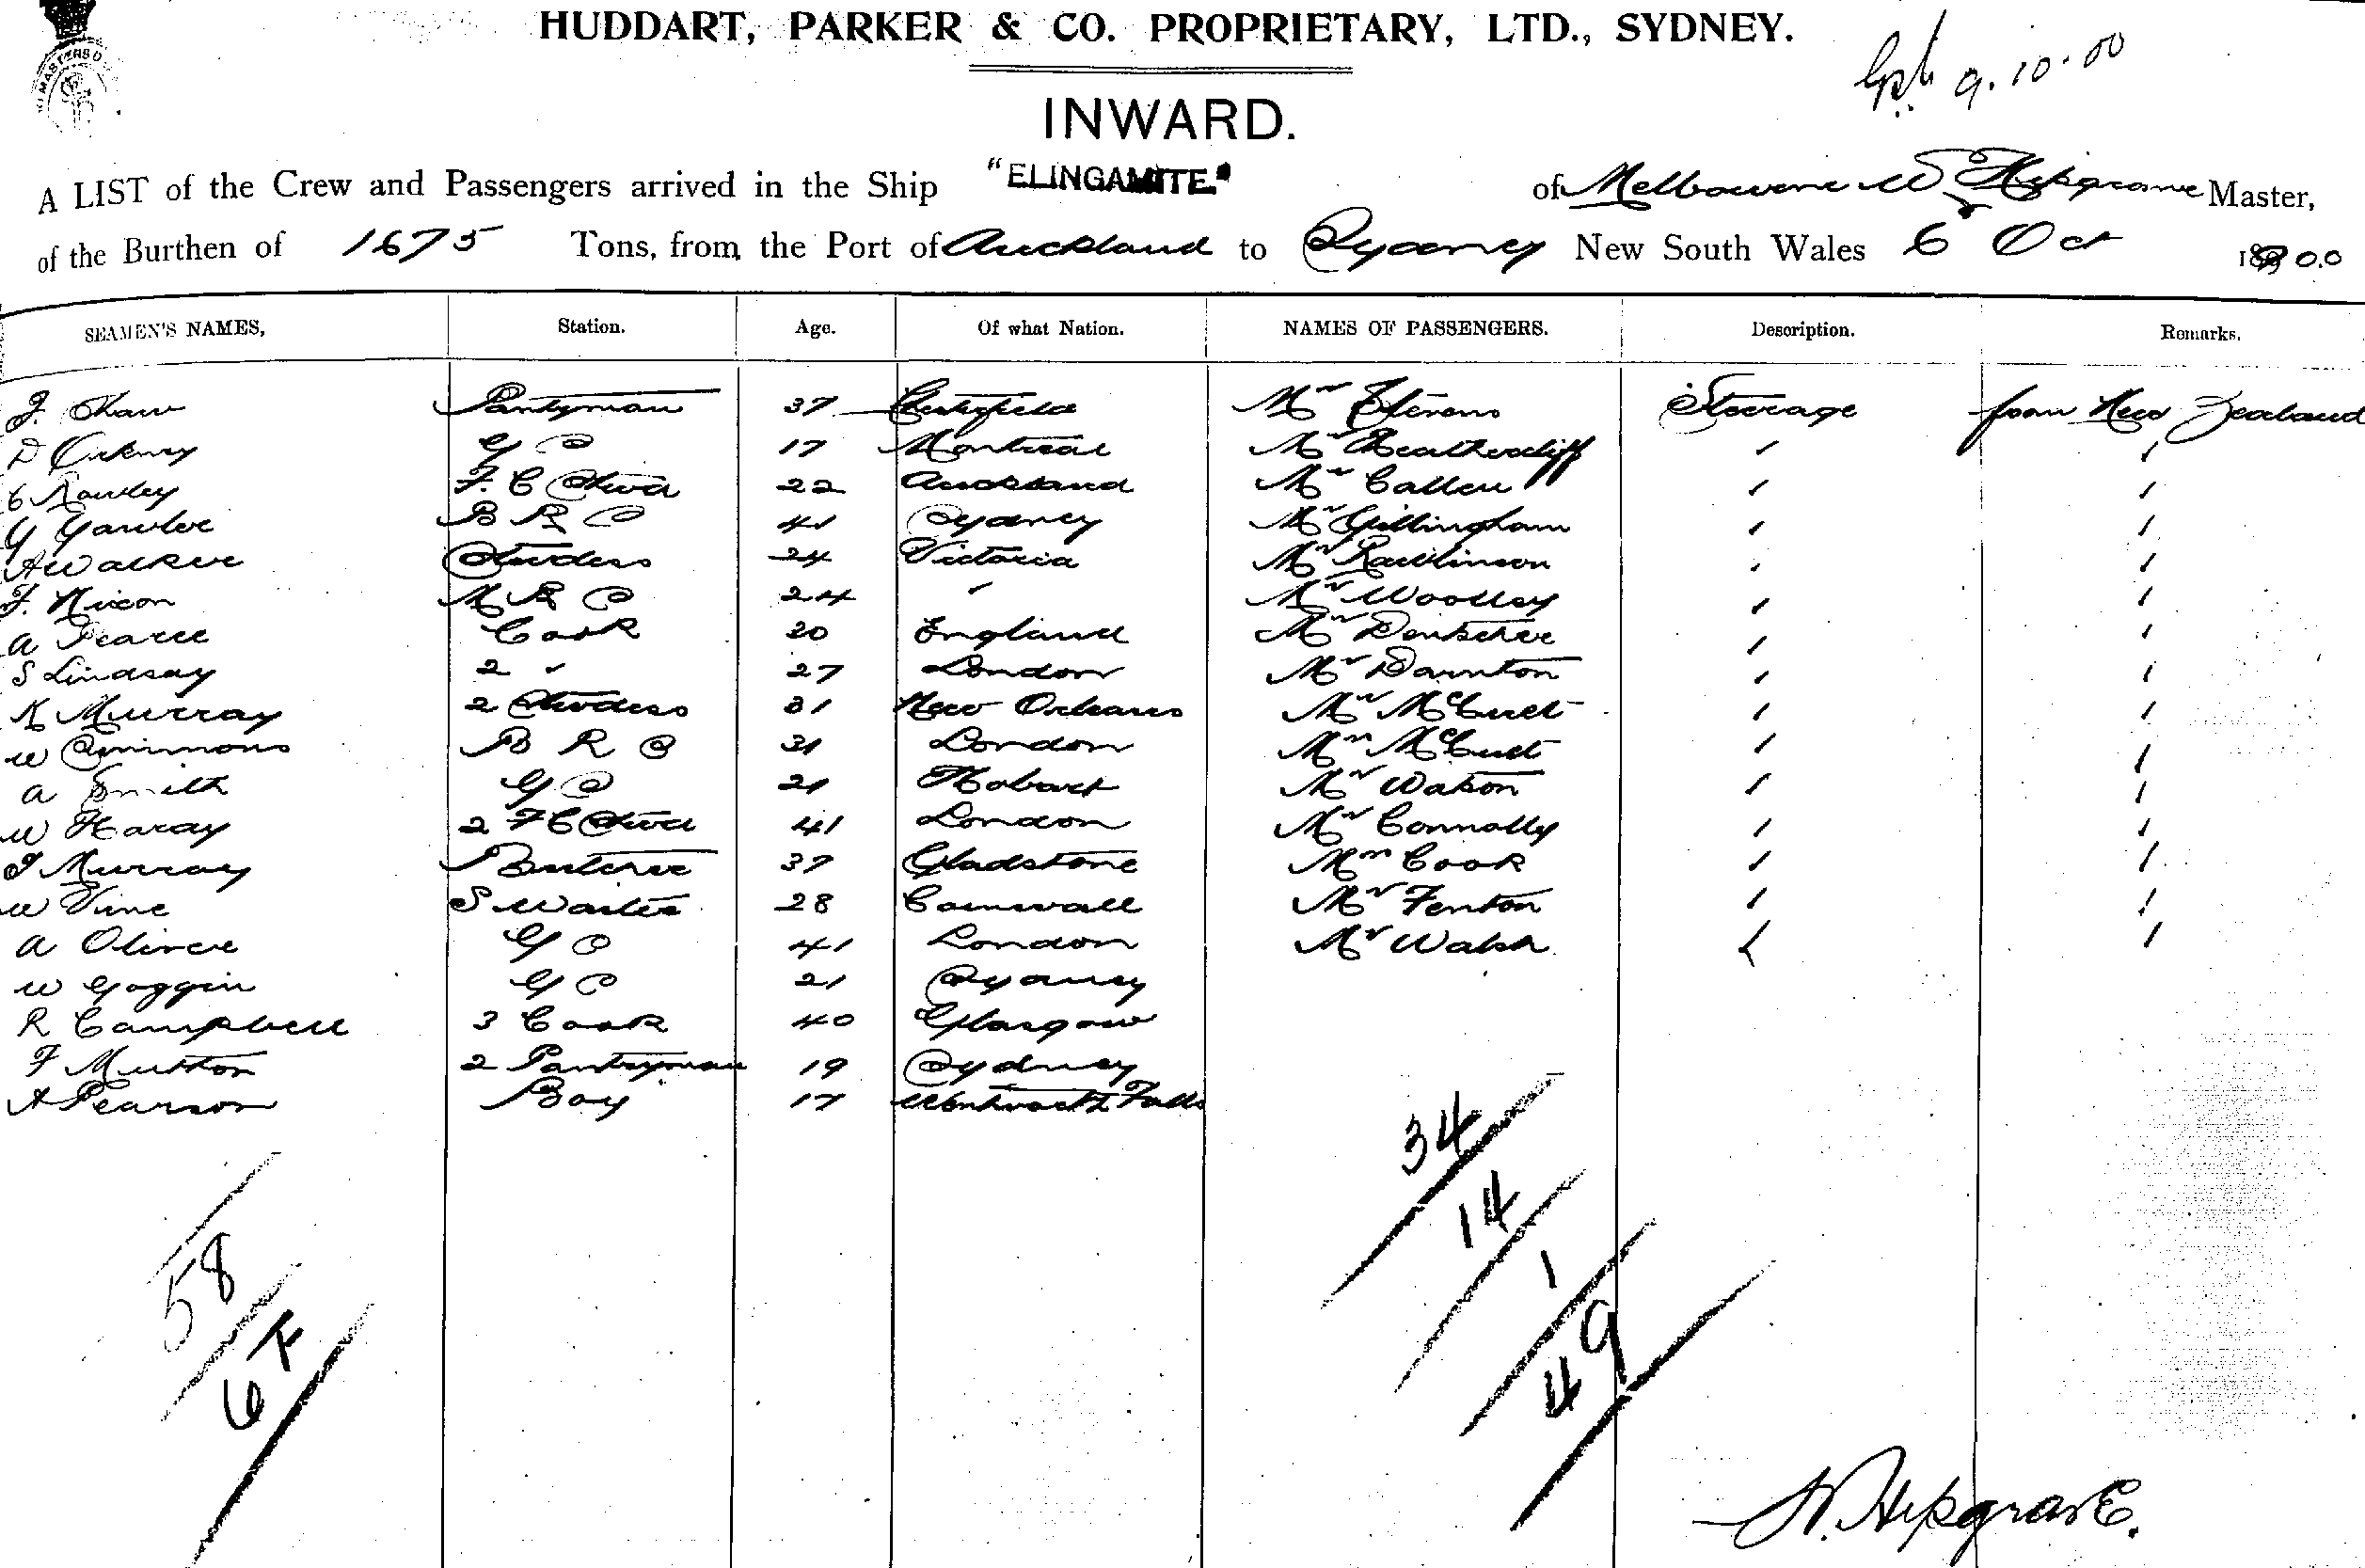 HUDDART, PARKER & CO. PROPRIETARY, LTD., SYDNEY.
9.10.00
INWARD.
A LIST of the Crew and Passengers arrived in the Ship "ELINGAMITE" of Melbourne W Hipgrave Master,
of the Burthen of 1675 Tons, from the Port of Auckland to Sydney New South Wales 6 Oct 1900
SEAMEN'S NAMES, Station. Age. Of what Nation. NAMES OF PASSENGERS. Description. Remarks.
J. Shaw Pantryman 37 Mr Stevens Steerage from New Zealand
D 17 Montreal Mr Heathercliff
C Rowley F. C Stwd 22 Auckland Mr Callen
G Gawler B R S 41 Sydney Mr Gillingham
A Walker Stwdess 24 Victoria Mr Rawlinson
F. Nixon M R S 24 Mr Woolley
A Pearce Cook 20 England Mr Dentscher
S Lindsay 2 " 27 London Mr Darnton
K Murray 2 Stwdess 31 New Orleans Mr
W Simmons B R S 31 London Mrs
A Smith G S 21 Hobart Mr Watson
W Hardy 2 F C Stwd 41 London Mr Connolly
J Murray Butcher 37 Gladstone Mrs Cook
W Vine S Waiter 28 Cornwall Mr Fenton
A Oliver G S 41 London Mr Walsh
W Goggin G S 21 Sydney
R Campbell 3 Cook 40 Glasgow
F Mutton 2 Pantryman 19 Sydney
A Pearson Boy 17 Wentworth Falls
34
14
1
49
58
6 F
W. Hipgrave.